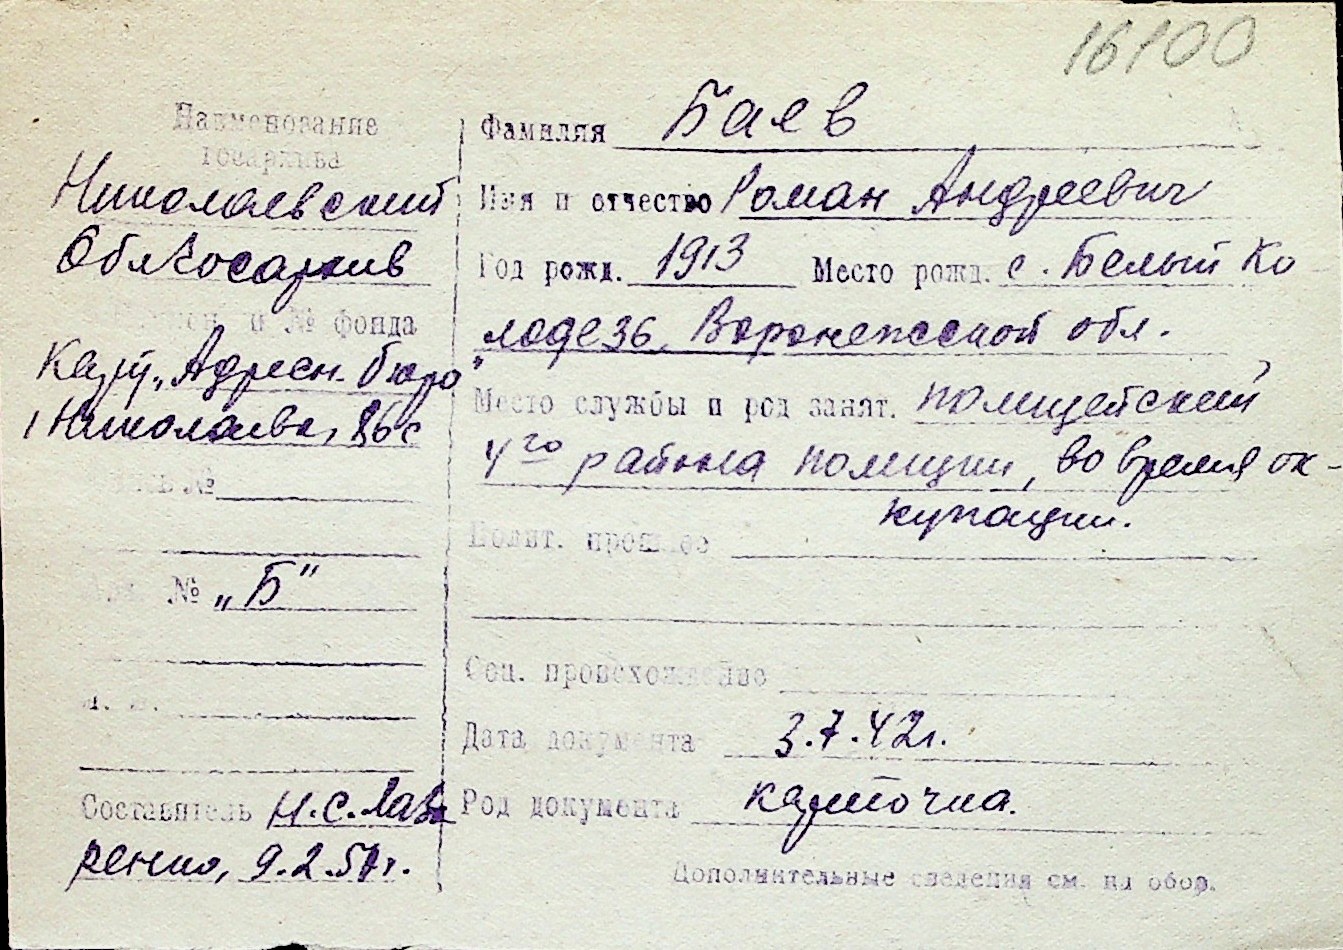 16100
Наименование
госархива
Николаевский
Облгосархив
и № фонда
"Адресн. бюро"
Николаева,
№
№ „Б"
Составитель Н.С. Лав
ренко, 9.2.51г.
Фамилия Баев
Имя и отчество Роман Андреевич
Год рожд. 1913 Место рожд. с. Белый Ко
лодезь, Воронежской обл.
Место службы и род занят. полицейский
4го района полиции, во время ок-
купации.
Полит. прошлое
Соц. происхождение
Дата документа 3.7.42г.
Род документа карточка.
Дополнительные сведения см. на обор.